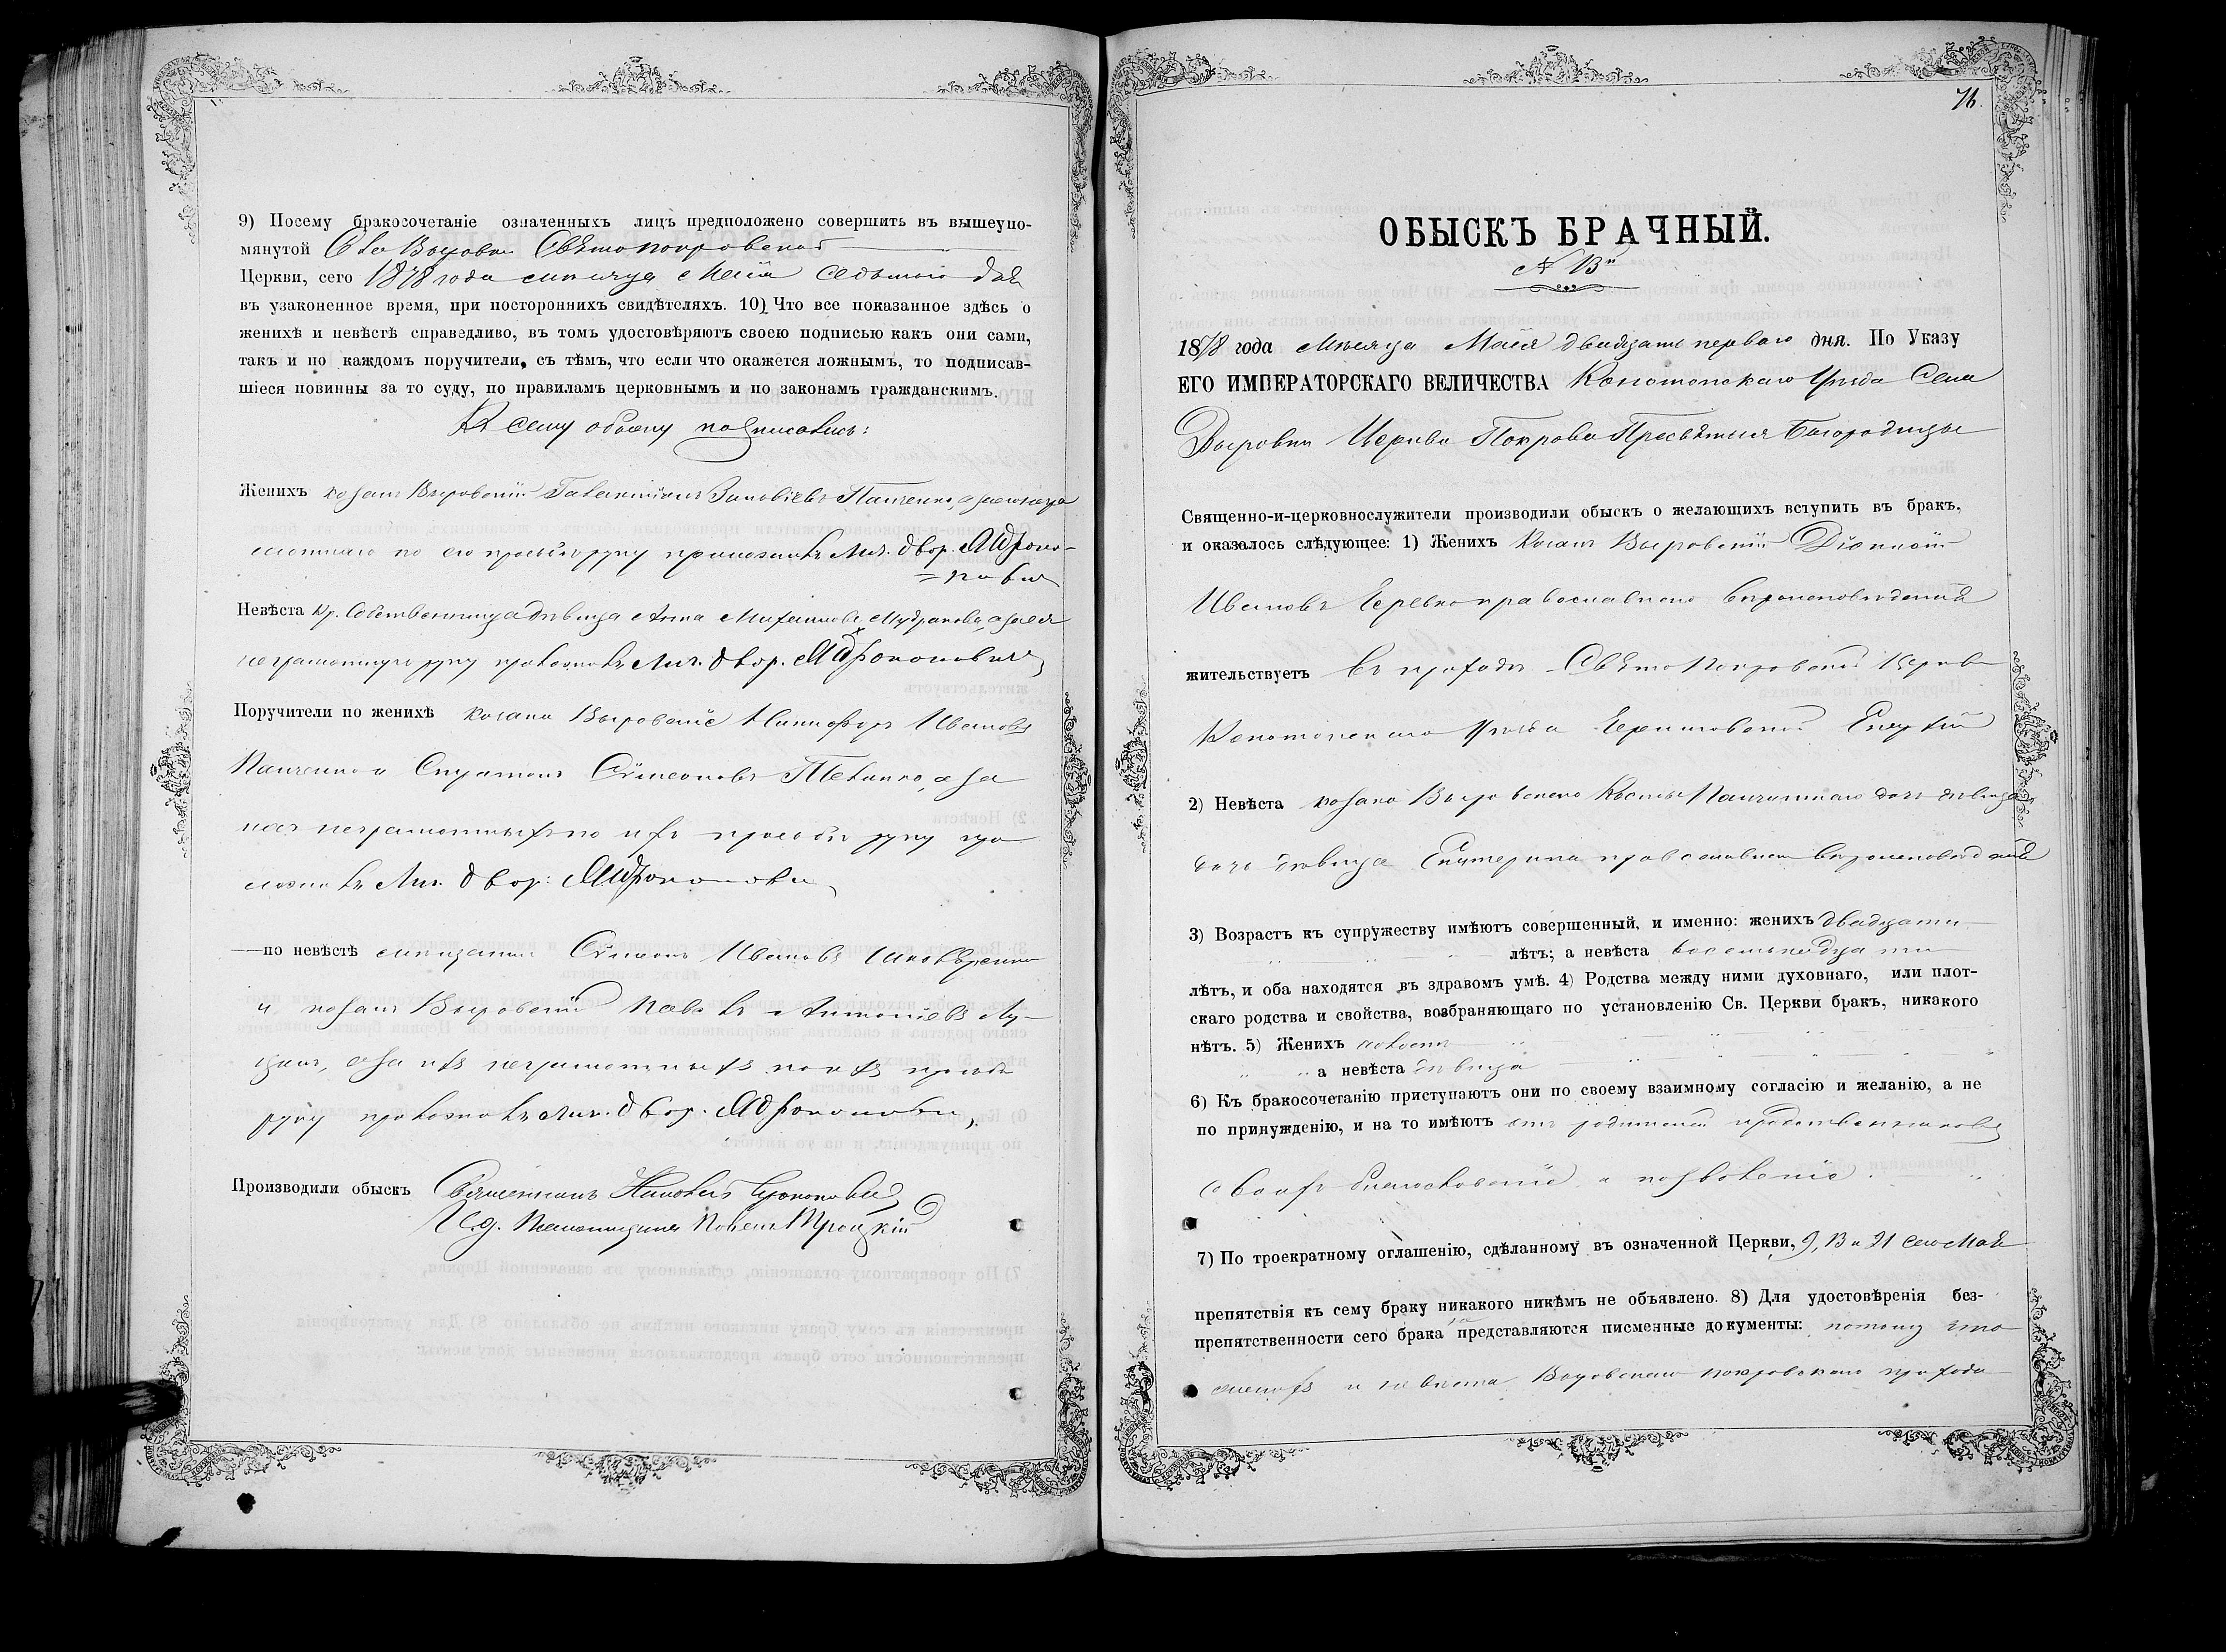 9) Посему бракосочетаніе означенныхъ лицъ предположено совершить въ вышеупо-
мянутой Села Выровки Свято Покровской
Церкви, сего 1878 года Маія седьмаго дня
въ узаконенное время, при постороннихъ свидѣтеляхъ. 10) Что все показанное здѣсь о
женихѣ и невѣстѣ справедливо, въ томъ удостовѣряютъ своею подписью какъ они сами,
такъ и по каждомъ поручители, съ тѣмъ, что если что окажется ложнымъ, то подписав-
шіеся повинны за то суду, по правиламъ церковнымъ и по законамъ гражданскимъ.
Къ сему обыску подписались:
Женихъ козакъ Выровскій Зиновіевъ Панченко, а за
по его прозьбѣ руку приложилъ Лич. двор.
Невѣста кр. Собственница дѣвица Анна Михаилова, а за ея
неграмотную руку приложилъ Лич. двор.
Поручители по женихѣ козаки Выровскіе Никифоръ Ивановъ
Панченко и Сѵмеоновъ а за
ихъ неграмотныхъ по ихъ прозьбѣ руку при
ложилъ Лич. двор:
—по невѣстѣ мѣщанинъ Сѵмеонъ Ивановъ
и козакъ Выровскій Павелъ Антоніевъ Лу-
ценко, а за ихъ неграмотныхъ по ихъ прозьбѣ
руку приложилъ Лич. двор.
Производили обыскъ Священникъ
И. д. Псаломщика Павелъ Троцкій
76.
ОБЫСКЪ БРАЧНЫЙ.
№ 13й
1878 года Мѣсяца Маія двадцать перваго дня. По Указу
ЕГО ИМПЕРАТОРСКАГО ВЕЛИЧЕСТВА Конотопскаго Уѣзда Села
Выровки Церкви Покрова Пресвятыя Богородицы
Священно-и-церковнослужители производили обыскъ о желающихъ вступить въ бракъ,
и оказалось слѣдующее: 1) Женихъ козакъ Выровскій
Ивановъ православнаго вѣроисповѣданія
жительствуетъ въ приходѣ Свято Покровской Церкви
Конотопскаго Уѣзда Черниговской Епархіи
2) Невѣста козака Выровскаго Панченка дочь дѣвица
дочь дѣвица Екатерина православнаго вѣроисповѣданія
3) Возрастъ къ супружеству имѣютъ совершенный, и именно: женихъ двадцати
лѣтъ; а невѣста восемьнадцати
лѣтъ, и оба находятся въ здравомъ умѣ. 4) Родства между ними духовнаго, или плот-
скаго родства и свойства, возбраняющаго по установленію Св. Церкви бракъ, никакого
нѣтъ. 5) Женихъ холостъ
а невѣста дѣвица
6) Къ бракосочетанію приступаютъ они по своему взаимному согласію и желанію, а не
по принужденію, и на то имѣютъ отъ родителей и родственниковъ
своихъ благословеніе и позволеніе.
7) По троекратному оглашенію, сдѣланному въ означенной Церкви, 9, 13 и 21 сего Маія
препятствія къ сему браку никакого никѣмъ не объявлено. 8) Для удостовѣренія без-
препятственности сего брака не представляются писменные документы: потому что
женихъ и невѣста Выровскаго Покровскаго прихода